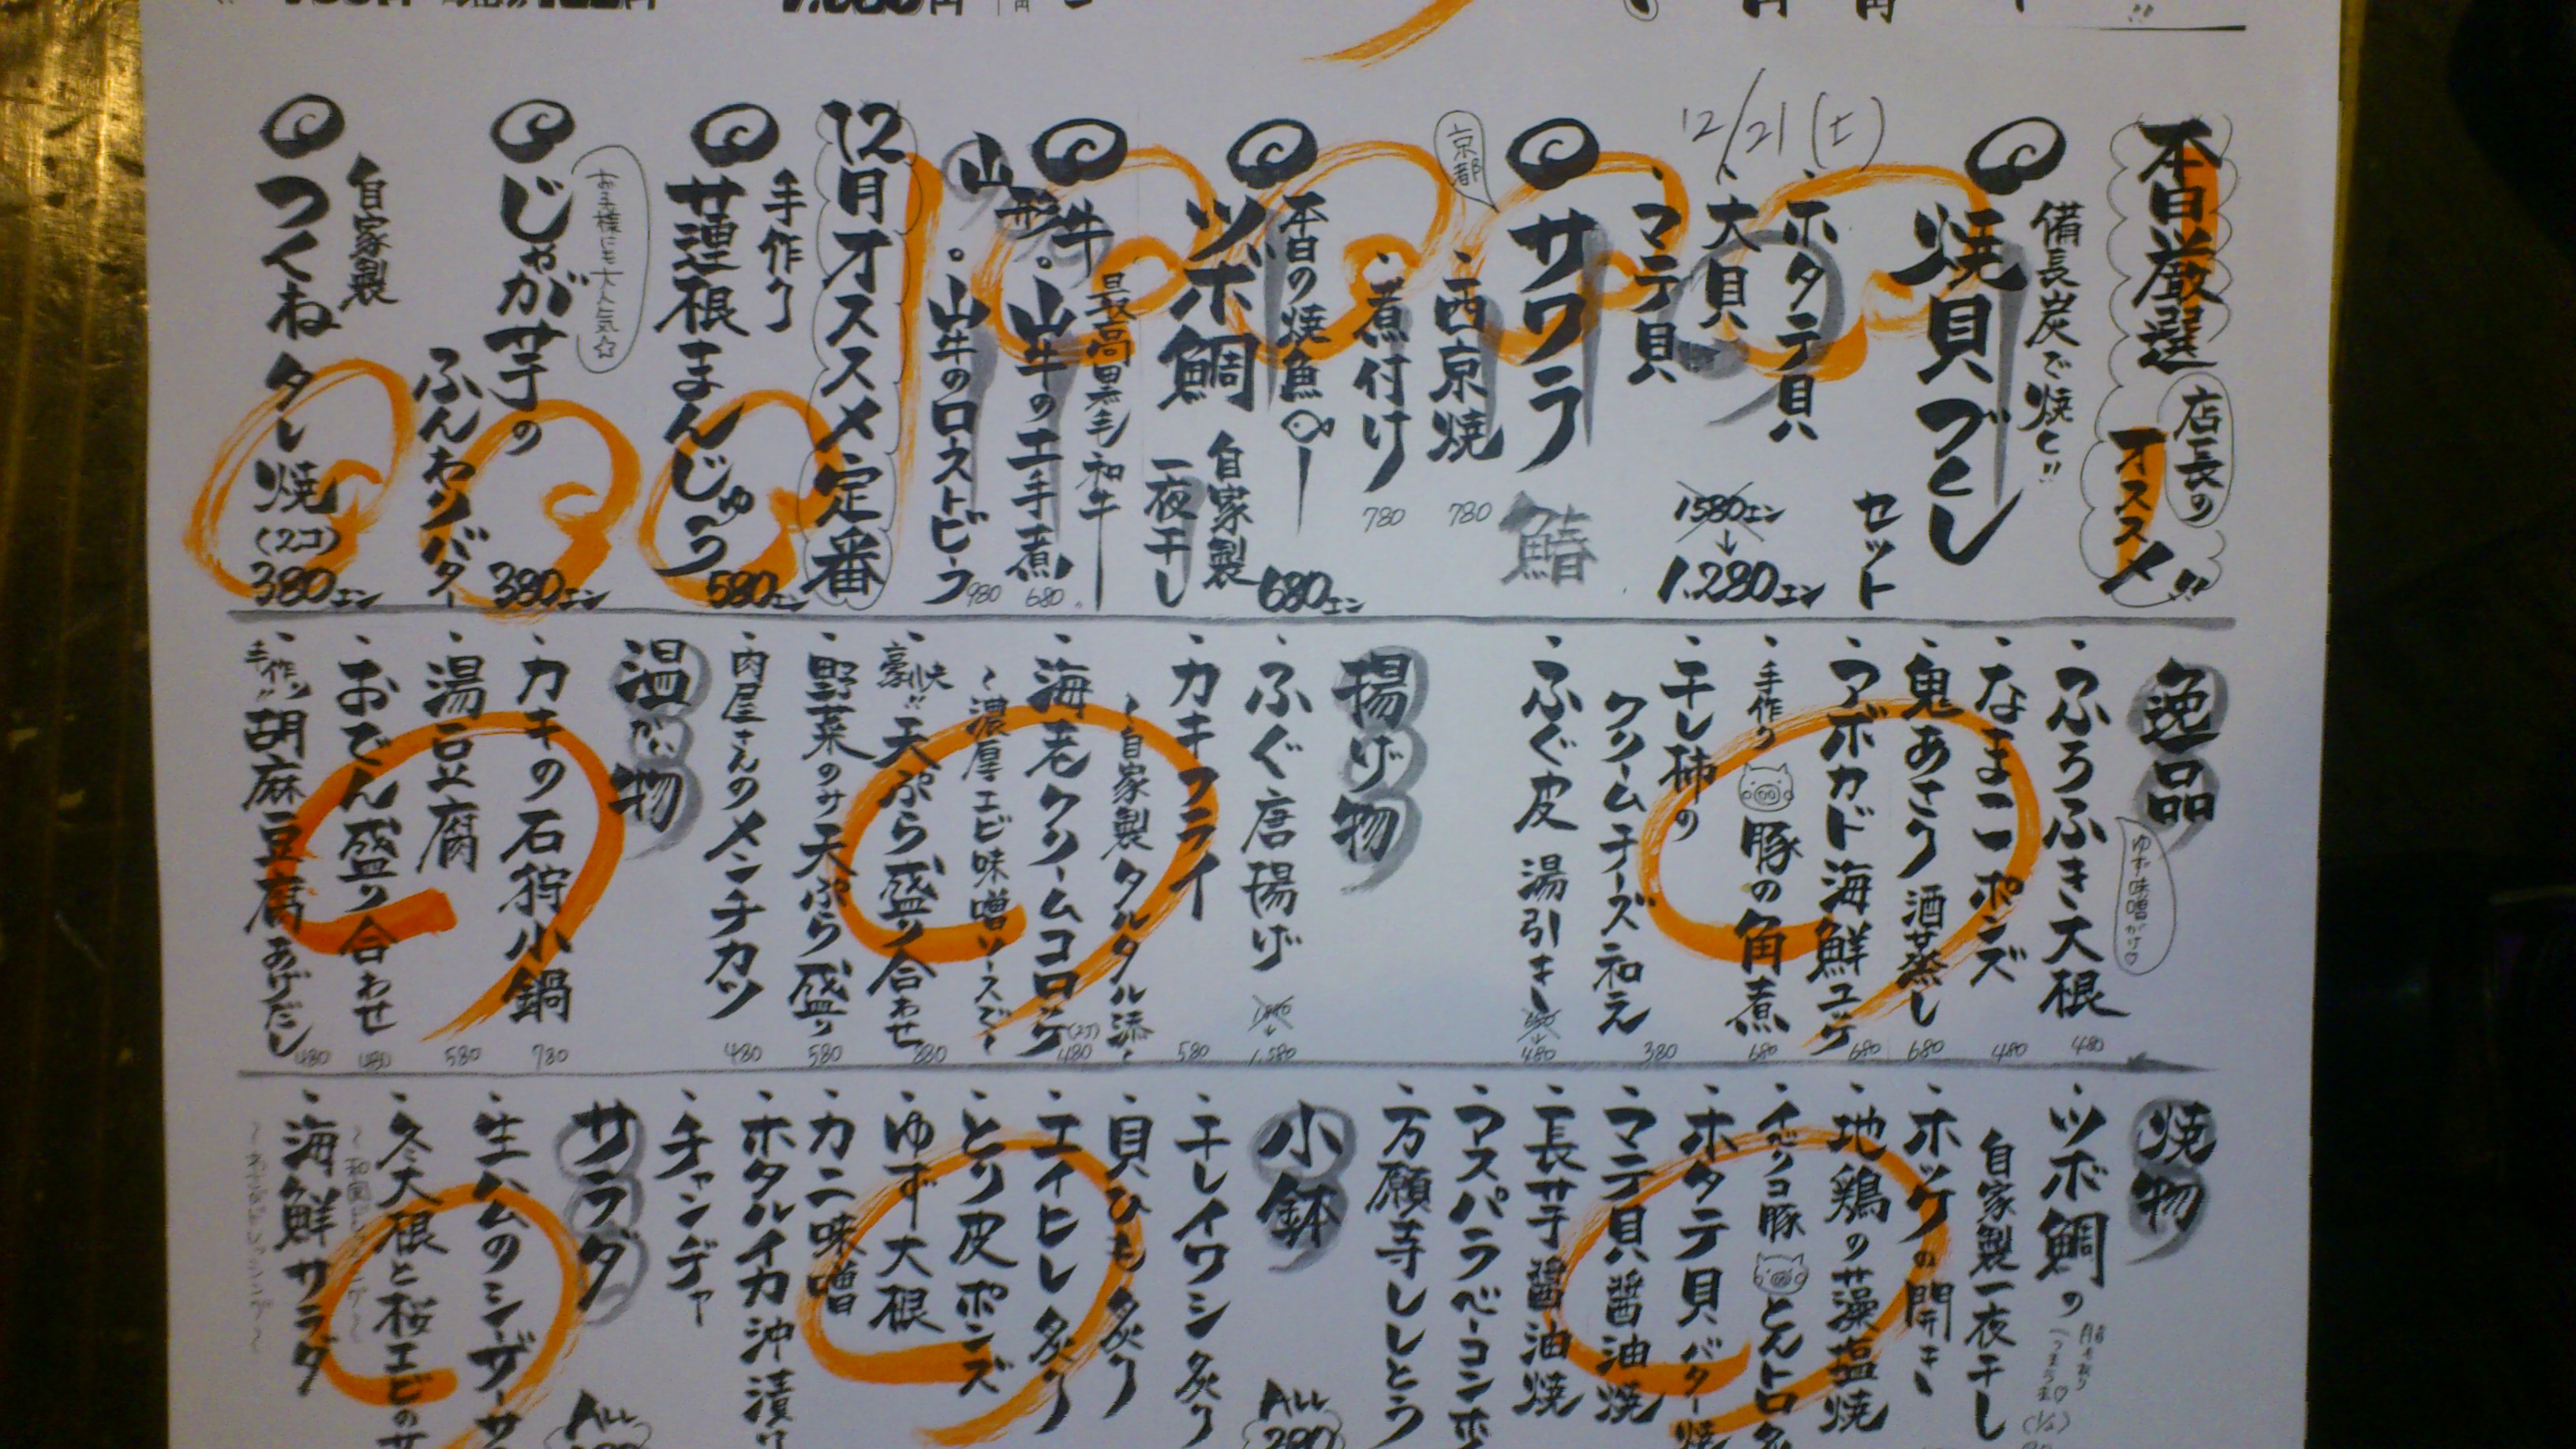 本日厳選
店長の
オススメ!!
備長炭で焼く!!
焼貝づくし
セット
・ホタテ貝
・大貝
・マテ貝
1580エン
↓
1.280エン
12/21(土)
サワラ
鰆
京都
・西京焼
780
・煮付け
780
本日の焼魚
ツボ鯛
自家製
一夜干し
680エン
山形牛
最高黒毛和牛
・山牛の工手煮
680
・山牛のロストビーフ
980
12月オススメ定番
手作り
蓮根まんじゅう
580エン
お子様にも大人気☆
じゃが芋の
ふんわりバター
380エン
自家製
つくねタレ焼
(2コ)
380エン
逸品
・ふろふき大根
ゆず味噌がけ♡
480
・なまこポンズ
480
・鬼あさり酒蒸し
680
・アボカド海鮮ユッケ
680
・手作り豚の角煮
680
・干し柿の
クリームチーズ和え
380
・ふぐ皮湯引き
480
揚げ物
・ふぐ唐揚げ
1.580
・カキフライ
~自家製タルタル添~
580
・海老クリームコロッケ
(2コ)
480
~濃厚エビ味噌ソースで~
・豪快!!天ぷら盛り合わせ
880
・野菜のみ天ぷら盛り
580
・肉屋さんのメンチカツ
480
温かい物
・カキの石狩小鍋
780
・湯豆腐
580
・おでん盛り合わせ
480
・手作り!!胡麻豆腐あげだし
480
焼物
・ツボ鯛の
自家製一夜干し
(1/2)
・ホッケの開き
・地鶏の藻塩焼
・イベリコ豚とんトロ
・ホタテ貝バター焼
・マテ貝醤油焼
・長芋醤油焼
・アスパラベーコン
・万願寺ししとう
小鉢
ALL
280
・干しイワシ炙り
・貝ひも炙り
・エイヒレ炙り
・とり皮ポンズ
・ゆず大根
・カニ味噌
・ホタルイカ沖漬け
・チャンヂャ
サラダ
ALL
・生ハムのシーザーサ
・冬大根と桜エビのサ
・海鮮サラダ